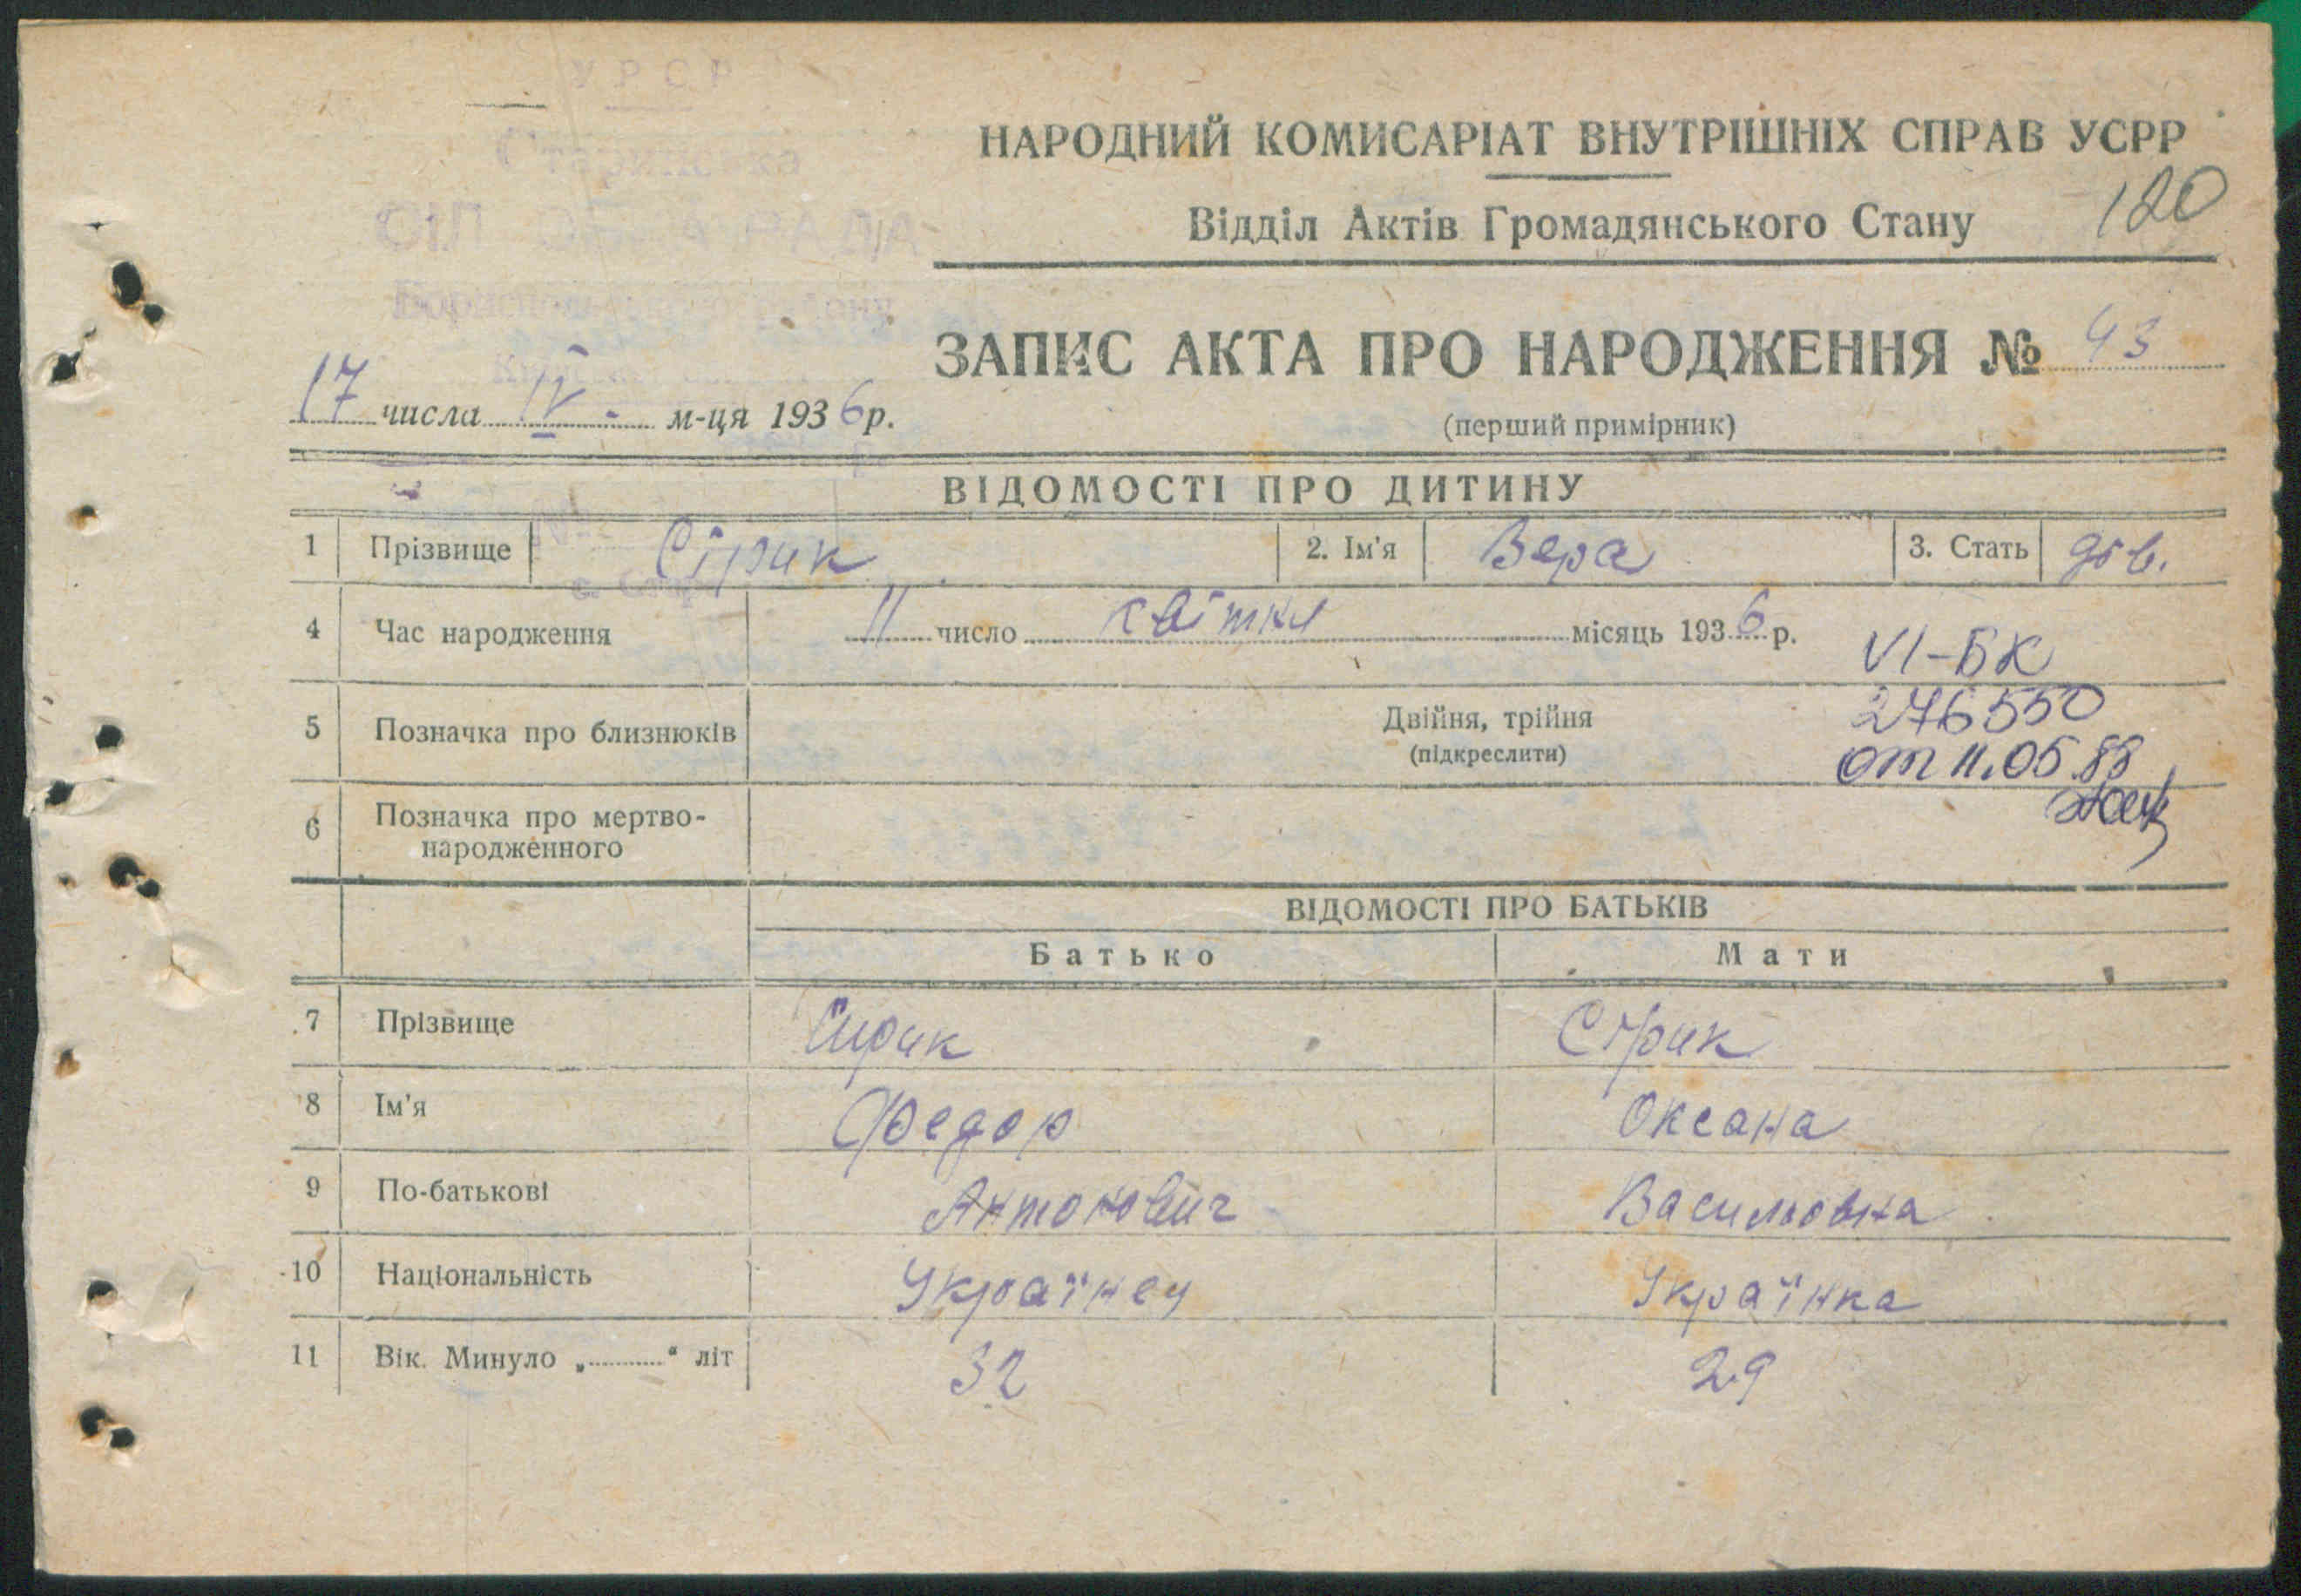 УРСР
НАРОДНИЙ КОМИСАРІАТ ВНУТРІШНІХ СПРАВ УСРР
Відділ Актів Громадянського Стану
120
РАДА
Бориспольського району
ЗАПИС АКТА ПРО НАРОДЖЕННЯ № 43
17 числа IV - м-ця 1936 р.
(перший примірник)
ВІДОМОСТІ ПРО ДИТИНУ
1 Прізвище Сірик 2. Ім'я Вера 3. Стать дів.
4 Час народження 11 число квітня місяць 1936 р.
VI-БК
5 Позначка про близнюків Двійня, трійня
(підкреслити)
276550
от 11.05.88
6 Позначка про мертво-
народженного
ВІДОМОСТІ ПРО БАТЬКІВ
Батько Мати
7 Прізвище Сирик Сірик
8 Ім'я Федор Оксана
9 По-батькові Антонович Васильовна
10 Національність Українец Українка
11 Вік. Минуло „ “ літ 32 29